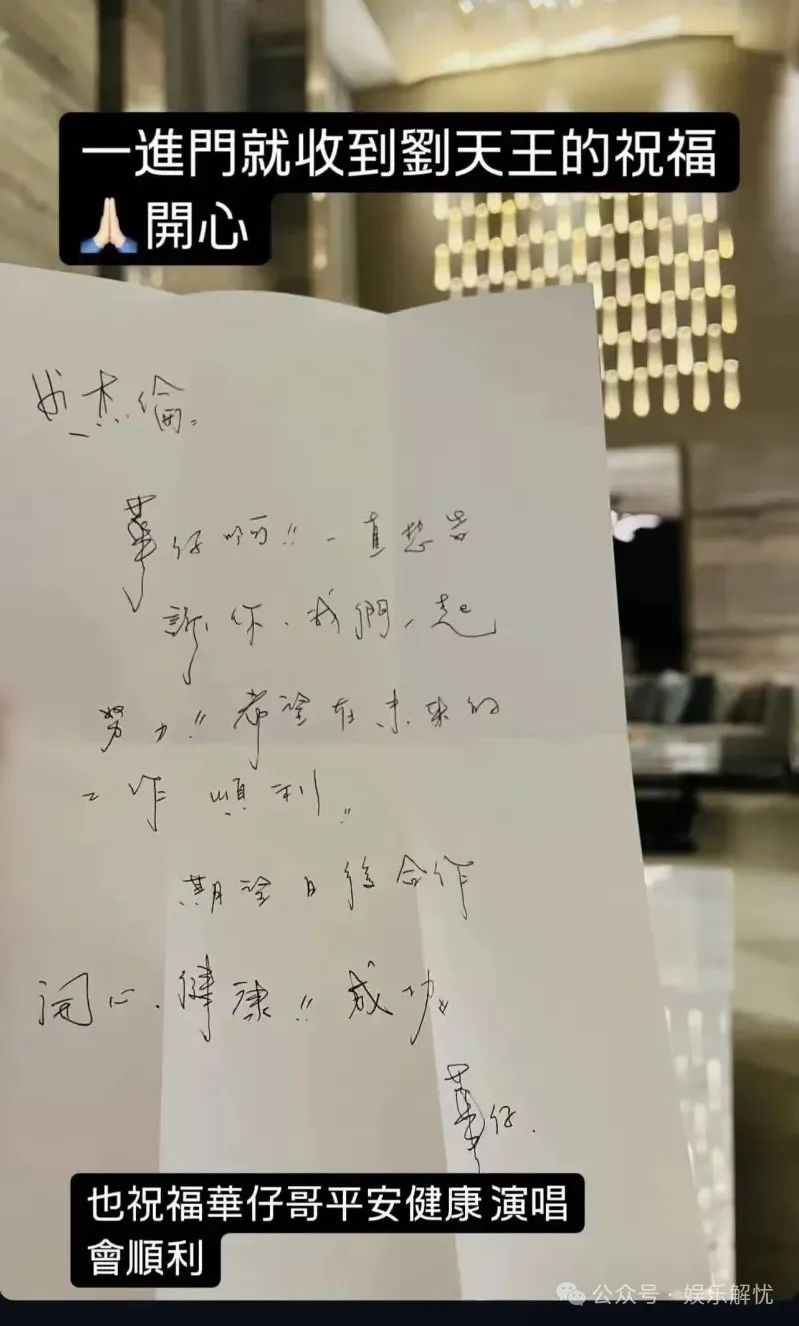 一進門就收到劉天王的祝福
🙏🏻開心
杰倫。
華仔啊!! 一直想告
訴你、我們一起
努力!! 希望在未來的
工作 順利!!
期望日後合作
開心、健康!! 成功!!
華仔.
也祝福華仔哥平安健康 演唱
會順利
公众号 · 娱乐解忧